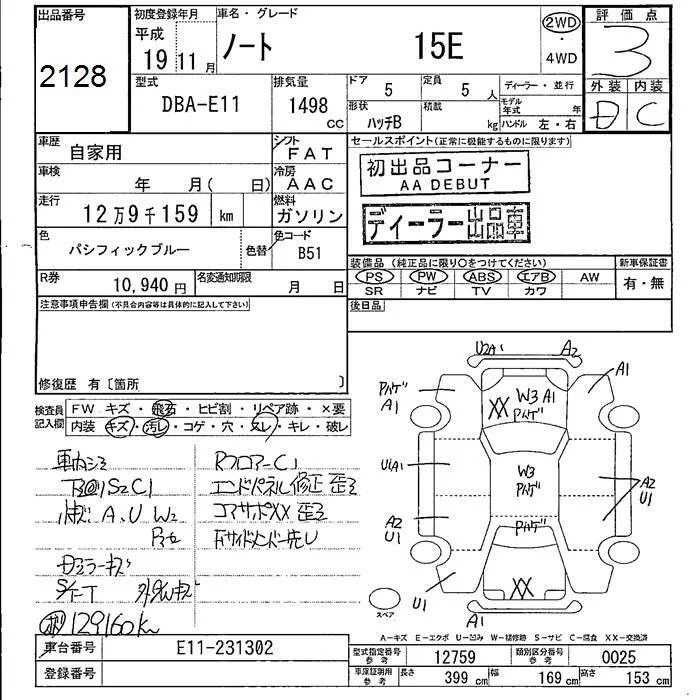 出品番号
2128
初度登録年月
平成
19 11 月
車名・グレード
ノート 15E
2WD
・
4WD
評価点
3
外装 内装
D C
型式
DBA-E11
排気量
1498
CC
ドア
5
定員
5 人
形状
ハッチB
積載
kg
ディーラー・並行
モデル年式 年
ハンドル 左・右
車歴
自家用
シフト
FAT
車検
年 月( 日)
冷房
AAC
走行
12万9千159 km
燃料
ガソリン
色
パシフィックブルー
色替
色コード
B51
R券
10,940 円
名変通知期限
月 日
セールスポイント(正常に機能するものに限ります)
初出品コーナー
AA DEBUT
ディーラー出品車
装備品(純正品に限り○をつけてください)
PS PW ABS エアB AW
SR ナビ TV カワ
新車保証書
有・無
後日品
注意事項申告欄(不具合内容等は具体的に記入して下さい)
修復歴 有〔箇所 〕
検査員記入欄
FW キズ・飛石・ヒビ割・リペア跡・×要
内装 キズ・汚レ・コゲ・穴・スレ・キレ・破レ
車内シミ
下回りS2C1
A、U W2
ミラーキズ
S/T-T
129160km
RフロアーC1
エンドパネル修正 歪ミ
コアサポXX 歪ミ
Fサイドメンバー先U
U2A1
A2
A1
パハゲ
A1
W3 A1
XX パハゲ
U1A1
W3
パハゲ
A2
U1
A2
U1
パハゲ
XX
U1
A1
スペア
A-キズ E-エクボ U-凹み W-補修跡 S-サビ C-腐食 XX-交換済
車台番号
E11-231302
登録番号
型式指定番号
参考
12759
類別区分番号
参考
0025
車庫証明用
参考
長さ 399 cm
幅 169 cm
高さ 153 cm